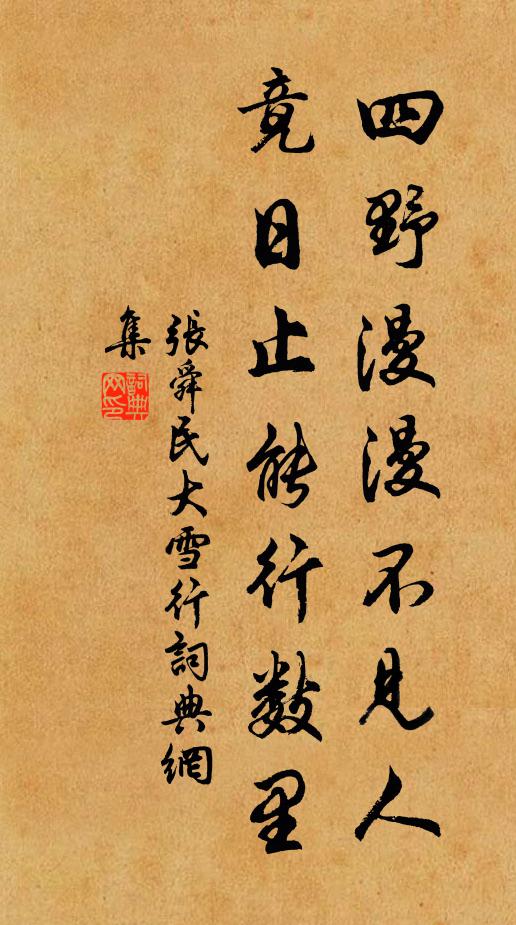 四野漫漫不見人
竟日止能行數里
張舜民大雪行詞典網
集
詞典
网印